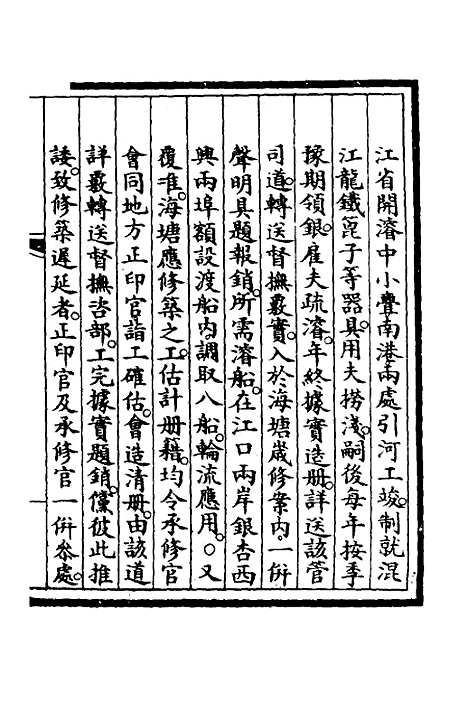 江省開濬中小亹南港兩處引河工竣。制就混
江龍鐵篦子等器具。用夫撈淺。嗣後每年按季
豫期領銀。雇夫疏濬。年終據實造册。詳送該管
司道。轉送督撫覈實。入於海塘歲修案內。一併
聲明具題報銷。所需濬船。在江口兩岸銀杏西
興兩埠額設渡船內。調取八船。輪流應用。○又
覆准。海塘應修築之工。估計册籍。均令承修官
會同地方正印官詣工確估。會造清册。由該道
詳覈轉送督撫咨部。工完據實題銷。儻彼此推
諉。致修築遲延者。正印官及承修官一併參處。